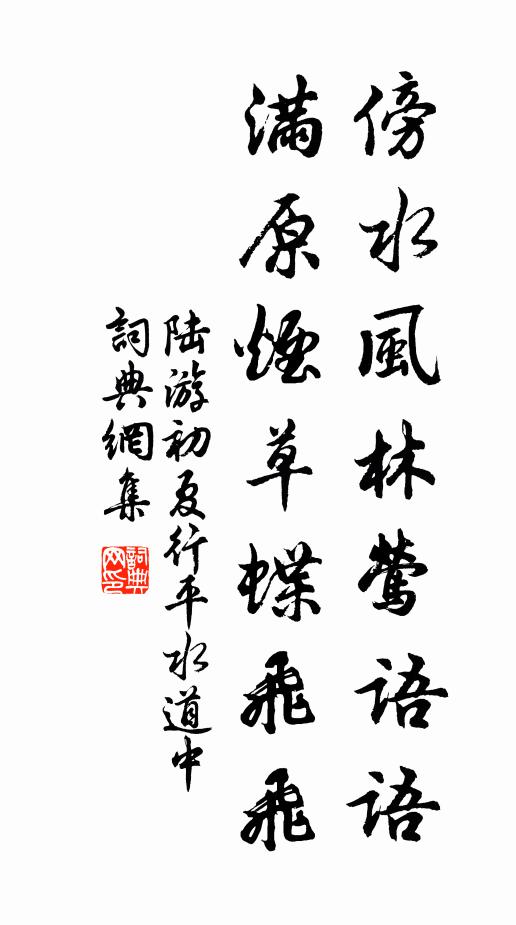 傍水風林鶯語語
滿原煙草蝶飛飛
陆游初夏行平水道中
詞典網集
詞典网印